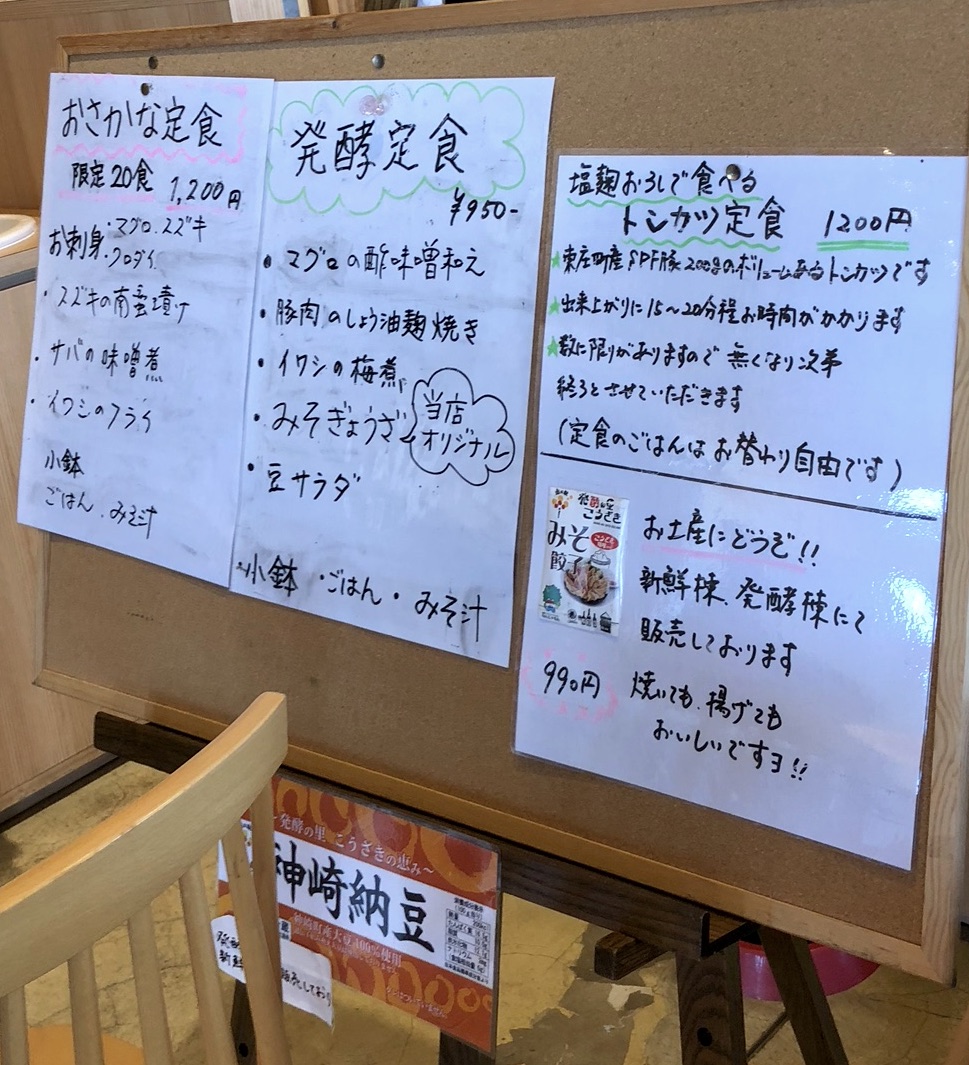 おさかな定食
限定20食 1,200円
お刺身・マグロ、スズキ
・クロダイ
・スズキの南蛮漬け
・サバの味噌煮
・イワシのフライ
小鉢
ごはん、みそ汁
発酵定食
¥950-
・マグロの酢味噌和え
・豚肉のしょう油麹焼き
・イワシの梅煮
・みそぎょうざ 当店オリジナル
・豆サラダ
・小鉢・ごはん・みそ汁
塩麹おろしで食べる
トンカツ定食 1200円
★東庄町産SPF豚200gのボリュームあるトンカツです
★出来上がりに15〜20分程お時間がかかります
★数に限りがありますので無くなり次第
終了とさせていただきます
(定食のごはんはお替わり自由です)
発酵の里
こうざき
みそ
餃子
お土産にどうぞ!!
新鮮棟、発酵棟にて
販売しております
990円
焼いても、揚げても
おいしいですヨ!!
発酵の里 こうざきの恵み〜
神崎納豆
神崎町産大豆100%使用
販売しており